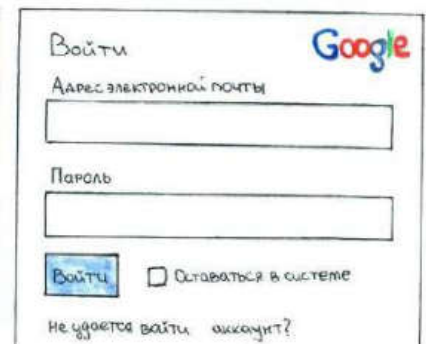 Войти Google
Адрес электронной почты
Пароль
Войти Оставаться в системе
Не удается войти аккаунт?